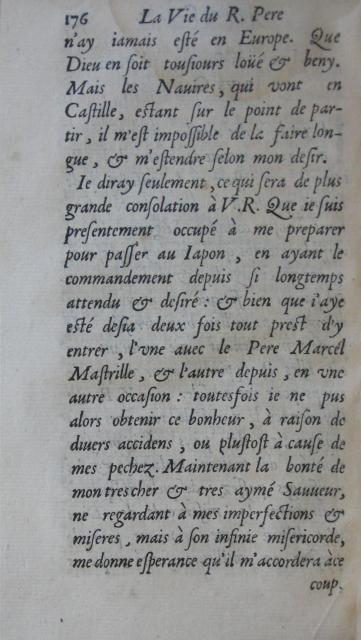 176 La Vie du R. Pere
n'ay iamais eſté en Europe. Que
Dieu en ſoit touſiours loüé & beny.
Mais les Nauires, qui vont en
Caſtille, eſtant ſur le point de par-
tir, il m'eſt impoſſible de la faire lon-
gue, & m'eſtendre ſelon mon deſir.
Ie diray ſeulement, ce qui ſera de plus
grande conſolation à V.R. Que ie ſuis
preſentement occupé à me preparer
pour paſſer au Iapon, en ayant le
commandement depuis ſi longtemps
attendu & deſiré: & bien que i'aye
eſté deſia deux fois tout preſt d'y
entrer, l'vne auec le Pere Marcel
Maſtrille, & l'autre depuis, en vne
autre occaſion: toutesfois ie ne pus
alors obtenir ce bonheur, à raiſon de
diuers accidens, ou pluſtoſt à cauſe de
mes pechez. Maintenant la bonté de
mon tres cher & tres aymé Sauueur,
ne regardant à mes imperfections &
miſeres, mais à ſon infinie miſericorde,
me donne eſperance qu'il m'accordera à ce
coup.